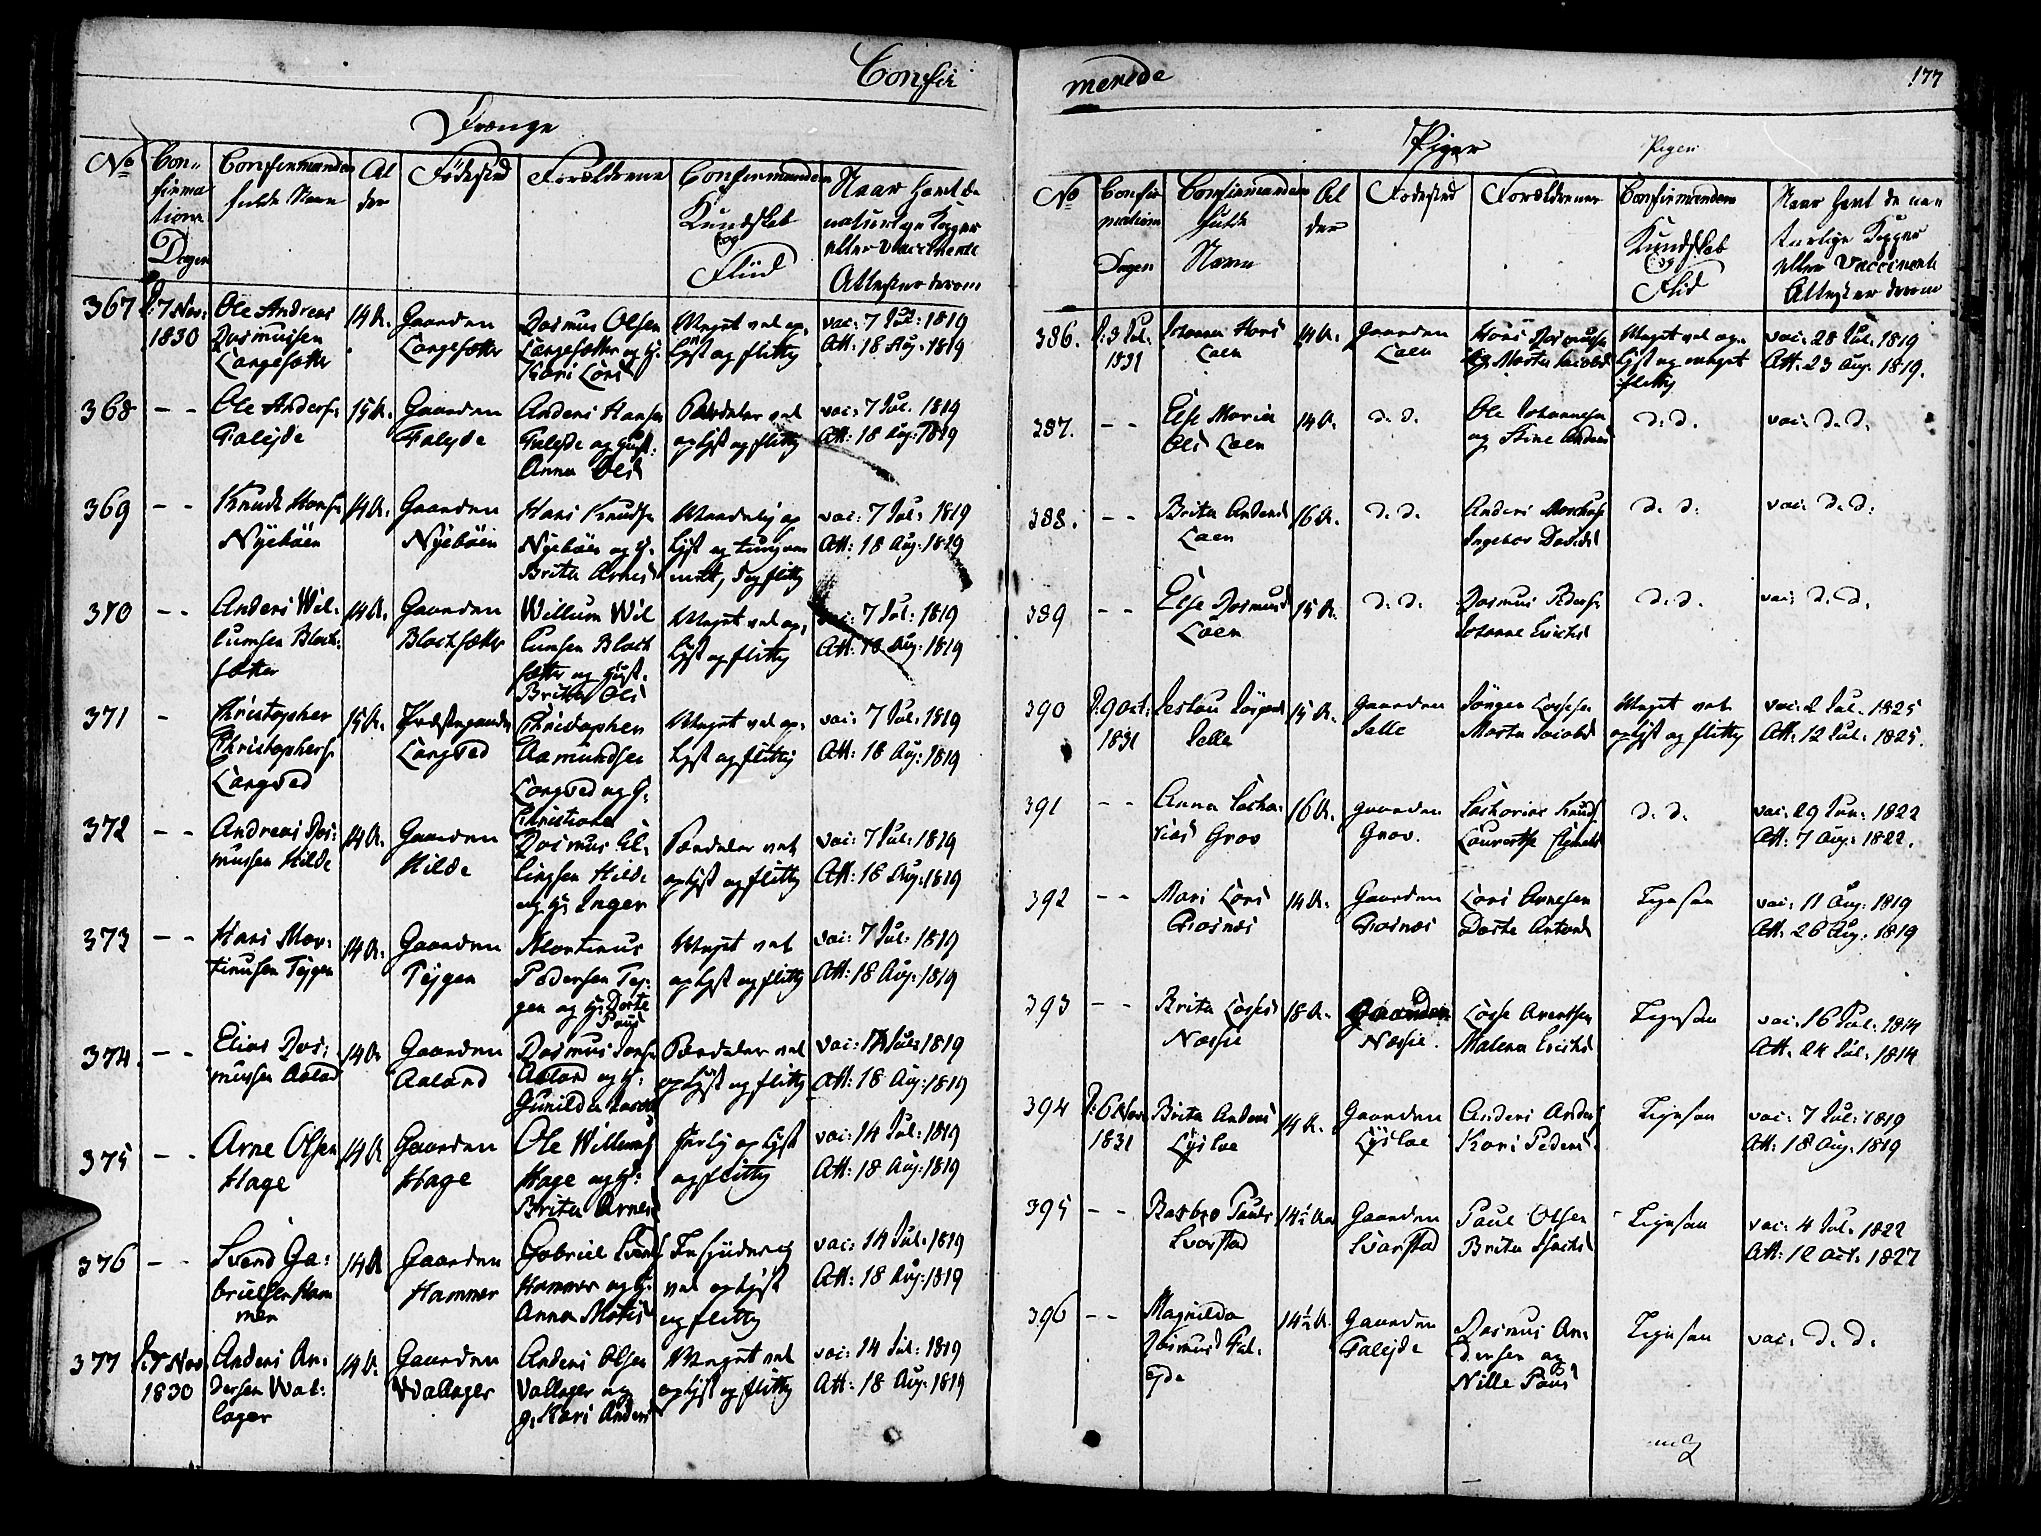 Confir
Drenge
No
Con-
firma
tions
Dagen
Confirmanden
fulde Navn
Al
der
Födested
Forældrene
Confirmandens
Kundskab
og
Fliid
Naar havt de
naturlige Kopper
eller vaccinerede
Attester derom
367
D: 7 Nov:
1830
Ole Andreas
Rasmussen
Langesætter
14 A.
Gaarden
Langesætter
Rasmus Olsen
Langesætter og H:
Kari Larsd
Meget vel op-
lyst og flittig
vac: 7 Jul: 1819
Att: 18 Aug: 1819
368
- -
Ole Anders:
Faleyde
15 A.
Gaarden
Faleyde
Anders Hansen
Faleyde og Hust:
Anna Olsd
Særdeles vel
oplyst og flittig
vac: 7 Jul. 1819
Att: 18 Aug: 1819
369
- -
Knudt Hans:
Nyeböen
14 A.
Gaarden
Nyeböen
Hans Knuds:
Nyeböen og H.
Brita Arnesd
Maadelig op
lyst og tungnem
mett, dog flittig
vac: 7 Jul: 1819
Att: 18 Aug: 1819
370
- -
Anders Wil-
lumsen Blach-
sætter
14 A.
Gaarden
Blachsætter
Willum Wil
lumsen Blach
sætter og Hust.
Britha Olsd
Meget vel op-
lyst og flittig
vac: 7 Jul: 1819
Att: 18 Aug: 1819
371
-
Christopher
Christophers:
Langved
15 A.
Præstegaarden
Langved
Christopher
Aamundsen
Langved og H:
Christiane
Meget vel op-
lyst og flittig
vac: 7 Jul: 1819
Att: 18 Aug: 1819
372
- -
Andreas Ras-
mussen Hilde
14 A.
Gaarden
Hilde
Rasmus El-
lingsen Hilde
og H: Inger
Særdeles vel
oplyst og flittig
vac: 7 Jul: 1819
Att: 18 Aug: 1819
373
- -
Hans Mor-
tinusen Tejgen
14 A.
Gaarden
Tejgen
Mortinus
Pedersen Tej-
gen og H: Dorte
Paulsd
Meget vel
oplyst og flittig
vac: 7 Jul: 1819
Att: 18 Aug: 1819
374.
- -
Elias Ras-
mussen Aaland
14 A
Gaarden
Aaland
Rasmus Jons:
Aaland og H:
Gunilda
Særdeles vel
oplyst og flittig
vac: 14 Jul: 1819
Att: 18 Aug: 1819
375
- -
Arne Olsen
Hage
14 A
Gaarden
Hage
Ole Willums:
Hage og H:
Brita Arnesd
oplyst
og flittig
vac: 14 Jul: 1819
Att: 18 Aug: 1819
376
- -
Svend Ga-
brielsen Ham
mer
14 A
Gaarden
Hammer
Gabriel Svends:
Hammer og H:
Anna Matisd
vel oplyst
og flittig
vac: 14 Jul: 1819
Att: 18 Aug: 1819
377
D: 7 Nov:
1830
Anders An-
dersen Wal-
lager
14 A.
Gaarden
Wallager
Anders Olsen
Vallager og
H. Kari Andersd
Meget vel
oplyst og flittig
vac: 14 Jul: 1819
Att: 18 Aug: 1819
merede
177
Piger
Piger
No
Confir
mations
Dagen
Confirmandens
fulde
Navn
Al
der
Födested
Forældrener
Confirmandens
Kundskab
og
Flid
Naar havt de na-
turlige Kopper
eller vaccinerede
Attester derom
386.
D: 3 Jul.
1831
Johanna Hans
Loen
14 A.
Gaarden
Loen
Hans Rasmussen
og Marta Jacobsd
Meget vel op-
lyst og meget
flittig
vac: 28 Jul. 1819
Att. 23 Aug: 1819.
387.
- -
Else Maria
Olsd Loen
14 A.
d. d.
Ole Johannesen
og Stine Andersd
d. d.
vac: d. d.
388.
- -
Brita Andersd
Loen
16 A.
d. d.
Anders
Ingebor Davidsd
d. d.
vac. d. d.
389
- -
Else Rasmusd
Loen
15 A.
d. d.
Rasmus Peders:
Johanne Erichsd
d. d.
vac: d. d.
390
D. 9 Oct:
1831
Selle
15 A.
Gaarden
Selle
Jörgen
Marta Jacobsd
Meget vel
oplyst og flittig
vac: 2 Jul. 1825
Att: 12 Jul: 1825.
391
- -
Anna Zacha-
rias Grov
16 A.
Gaarden
Grov.
Zacharias Knuds:
Lauretse
d. d.
vac: 29 Jun: 1822
Att: 7 Aug: 1822.
392
- -
Mari Lars
Rosnæs
14 A.
Gaarden
Rosnæs
Lars Arnesen
Dorte Antonsd
Ligesaa
vac: 11 Aug: 1819
Att. 26 Aug: 1819
393
- -
Brita Lassesd
Næssie
18 A.
Gaarden
Næssie.
Lasse Arentsen
Malena Erichsd
Ligesaa
vac: 16 Jul: 1814
Att. 24 Jul: 1814
394
D: 6 Nov
1831
Brita Anders
Lysloe
14 A.
Gaarden
Lysloe
Anders Anders:
Kari Pedersd
Ligesaa
vac: 7 Jul: 1819
Att: 18 Aug: 1819
395
- -
Rasbro Pauls
Svarstad
14½ A.
Gaarden
Svarstad
Paul Olsen
Brita
Ligesaa
vac: 4 Jul: 1822
Att: 12 Oct: 1827
396
- -
Magnilda
Rasmusd Fal-
eyde
14½ A.
Gaarden
Faleyde
Rasmus An-
dersen og
Nille Paulsd
Ligesaa
vac: d. d.